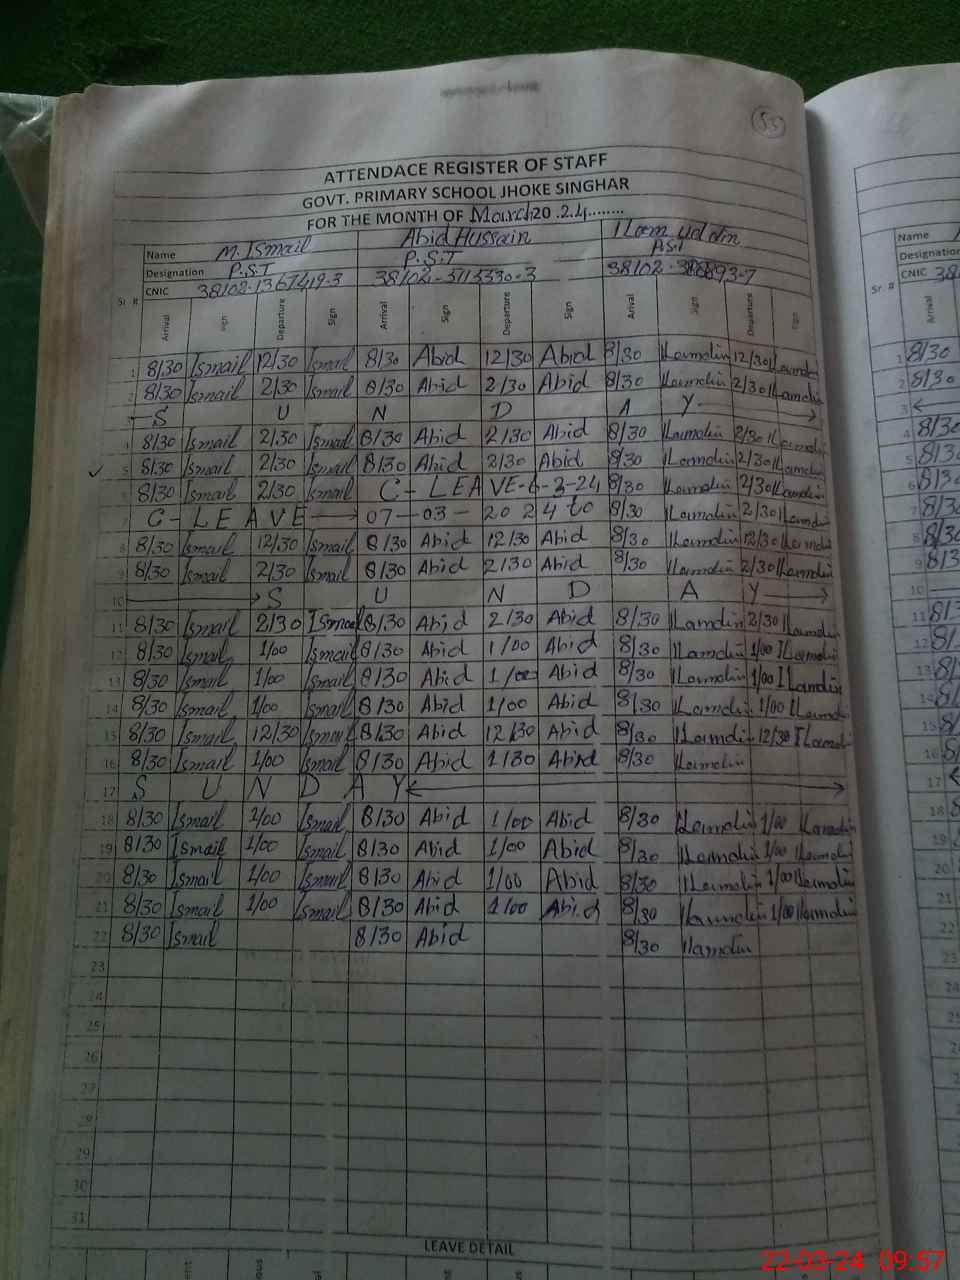 53
ATTENDACE REGISTER OF STAFF
GOVT. PRIMARY SCHOOL JHOKE SINGHAR
FOR THE MONTH OF March 20.24........
Name M. Ismail Abid Hussain Ilam uddin
Designation P.S.T P.S.T
CNIC 38102-1367419-3
Sr. # Arrival Sign Departure Sign Arrival Sign Departure Sign Arival Sign Departure Sign
1 8/30 Ismail 12/30 Ismail 8/30 Abid 12/30 Abid 8/30 Ilamdin 12/30 Ilamdin
2 8/30 Ismail 2/30 Ismail 8/30 Abid 2/30 Abid 8/30 Ilamdin 2/30 Ilamdin
S U N D A Y
4 8/30 Ismail 2/30 Ismail 8/30 Abid 2/30 Abid 8/30 Ilamdin 2/30 Ilamdin
5 8/30 Ismail 2/30 Ismail 8/30 Abid 2/30 Abid 8/30 Ilamdin 2/30 Ilamdin
8/30 Ismail 2/30 Ismail C-LEAVE-6-3-24 8/30 Ilamdin 2/30 Ilamdin
7 C-LEAVE 07-03-2024 to 8/30 Ilamdin 2/30 Ilamdin
8 8/30 Ismail 12/30 Ismail 8/30 Abid 12/30 Abid 8/30 Ilamdin 12/30 Ilamdin
9 8/30 Ismail 2/30 Ismail 8/30 Abid 2/30 Abid 8/30 Ilamdin 2/30 Ilamdin
10 S U N D A Y
11 8/30 Ismail 2/30 Ismail 8/30 Abid 2/30 Abid 8/30 Ilamdin 2/30 Ilamdin
12 8/30 Ismail 1/00 Ismail 8/30 Abid 1/00 Abid 8/30 Ilamdin 1/00 Ilamdin
13 8/30 Ismail 1/00 Ismail 8/30 Abid 1/00 Abid 8/30 Ilamdin 1/00 Ilamdin
14 8/30 Ismail 1/00 Ismail 8/30 Abid 1/00 Abid 8/30 Ilamdin 1/00 Ilamdin
15 8/30 Ismail 12/30 Ismail 8/30 Abid 12/30 Abid 8/30 Ilamdin 12/30 Ilamdin
16 8/30 Ismail 1/00 Ismail 8/30 Abid 1/30 Abid 8/30 Ilamdin
17 S U N D A Y
18 8/30 Ismail 1/00 Ismail 8/30 Abid 1/00 Abid 8/30 Ilamdin 1/00 Ilamdin
19 8/30 Ismail 1/00 Ismail 8/30 Abid 1/00 Abid 8/30 Ilamdin 1/00 Ilamdin
20 8/30 Ismail 1/00 Ismail 8/30 Abid 1/00 Abid 8/30 Ilamdin 1/00 Ilamdin
21 8/30 Ismail 1/00 Ismail 8/30 Abid 1/00 Abid 8/30 Ilamdin 1/00 Ilamdin
22 8/30 Ismail 8/30 Abid 8/30 Ilamdin
23
24
25
26
27
28
29
30
31
LEAVE DETAIL
Name
Designation
CNIC 38
Sr. # Arrival
1 8/30
2 8/30
3
4 8/30
5 8/30
6 8/30
7 8/30
8 8/30
9 8/30
10
11
12
13
14
15
16
17
18
19
20
21
22
22-03-24 09:57